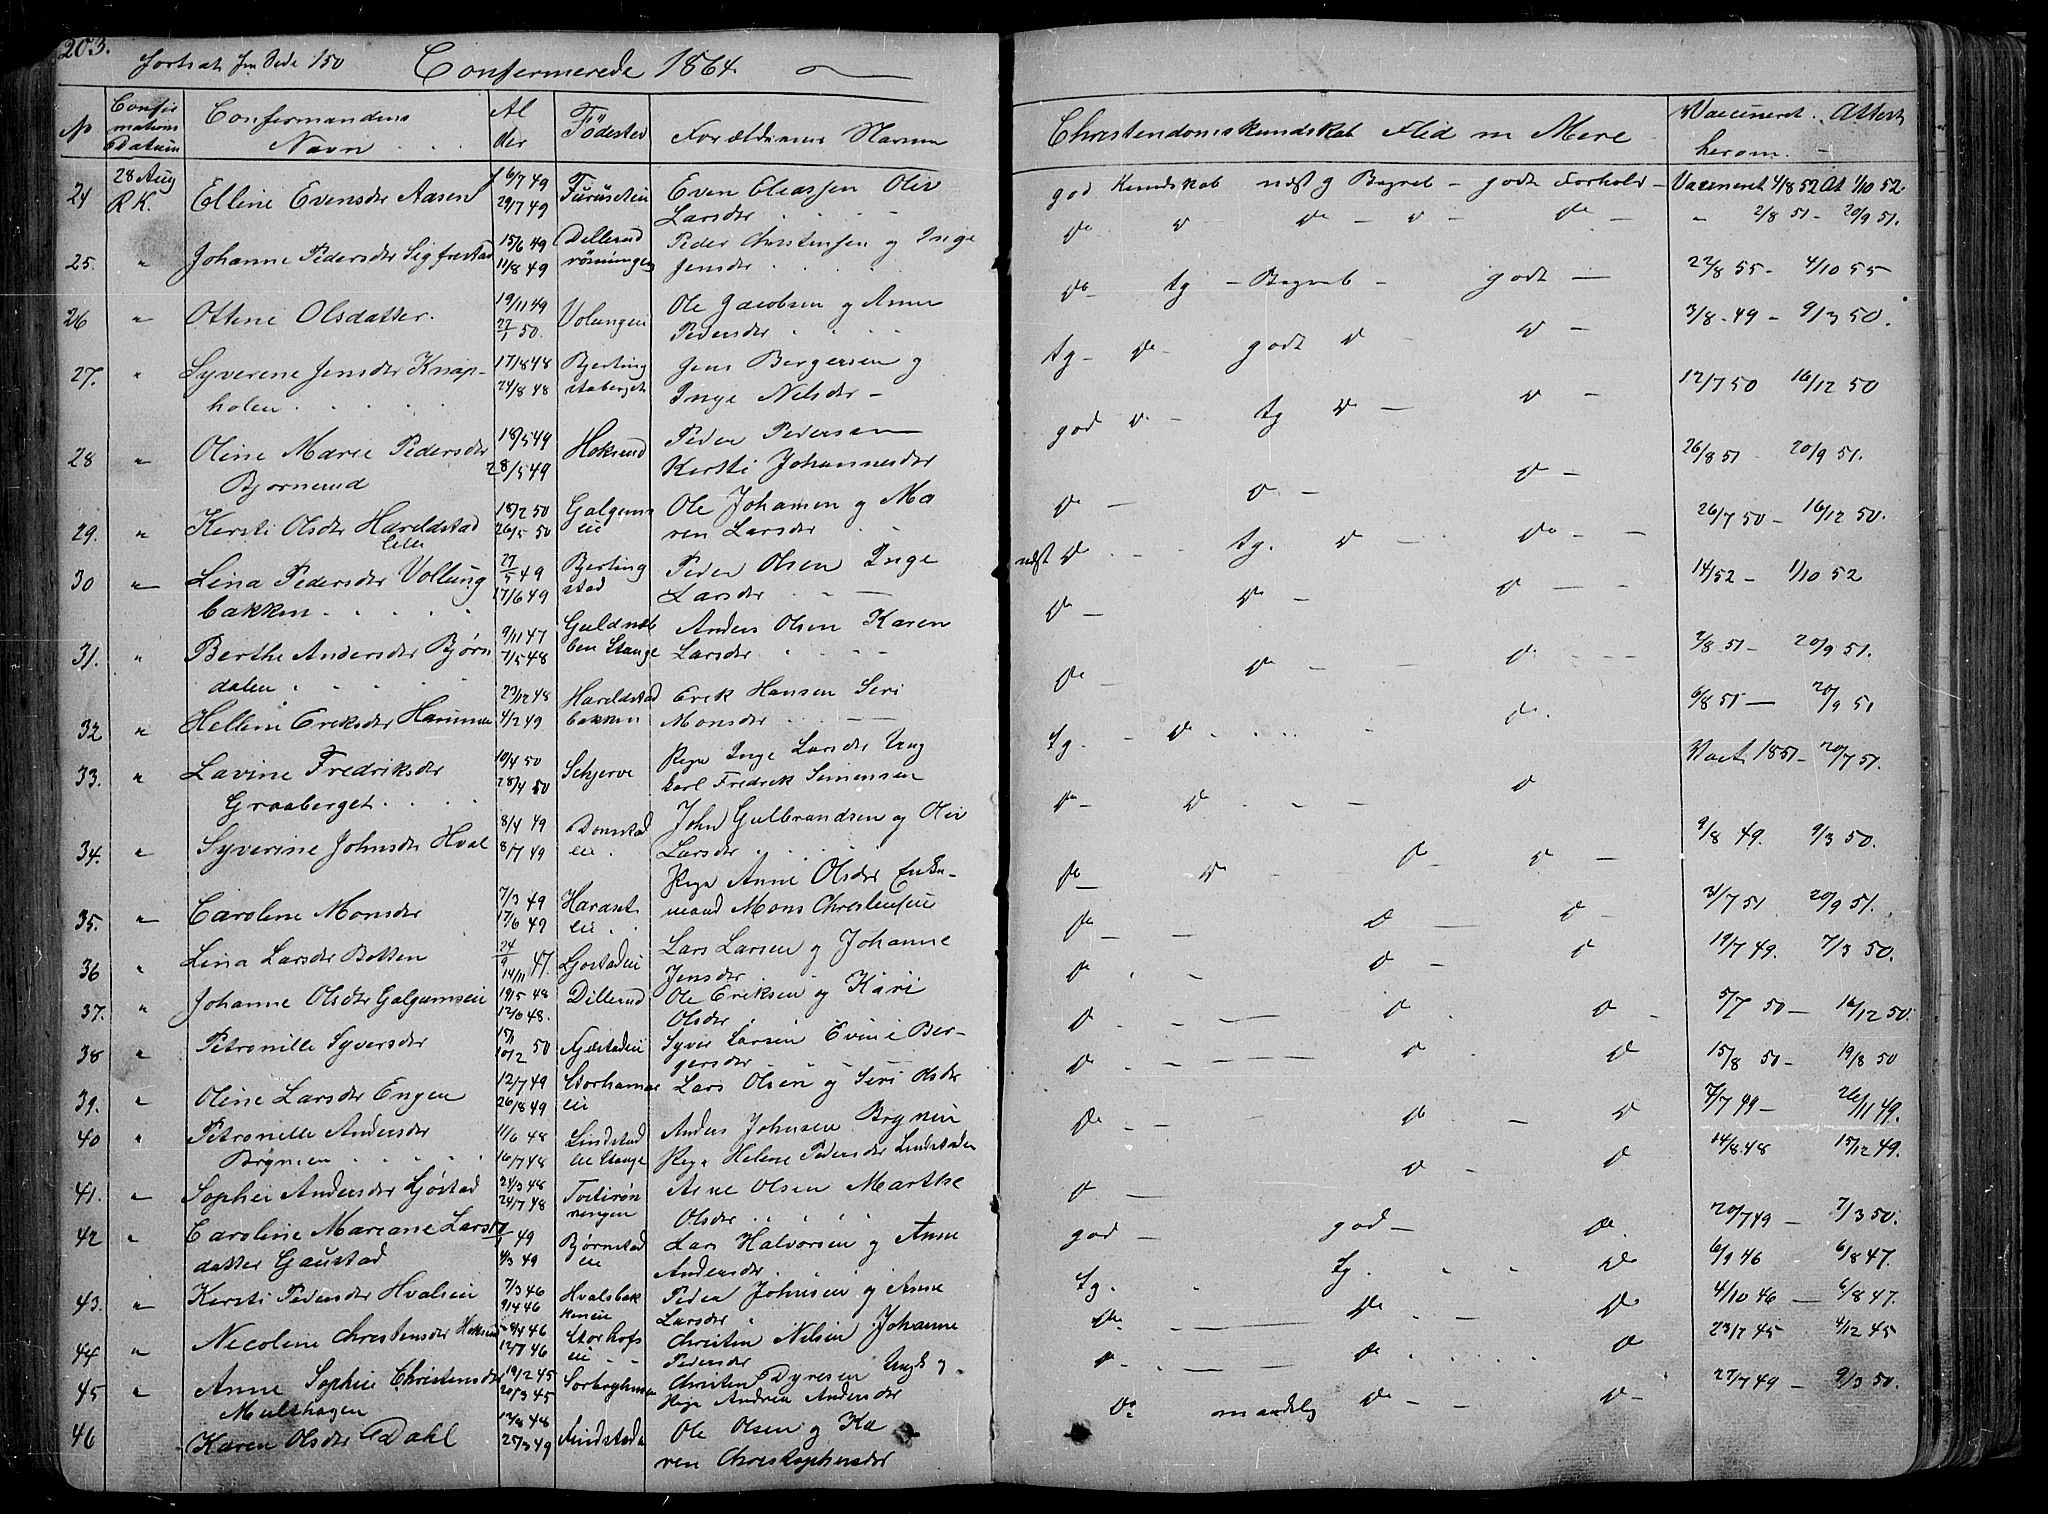 203.
fortsat fra Side 150 Confermerede 1864
No Confirmations Datum Confermandens Navn Alder Födested Forældrenes Navne Christendomskundskab Flid m Mere Vaccineret Attest herom
24 28 Aug R.K. Ellene Evensdr Aasen f 6/7 49 29/7 49 Furuseteie Even Eleassen Oliv Larsdr god Kundskab næst g Begreb - godt Forhold - Vaccineret 4/8 52 At 1/10 52
25. " Johanne Pedersdr Sigfrestad 15/6 49 11/8 49 Dillerudrönningen Peder Christensen og Inge Jensdr do do do - do - do - " 2/8 51 - 20/9 51.
26 " Ottene Olsdatter. 19/11 49 27/1 50. Volungeie Ole Jacobsen og Anne Pedersdr do - tg - Begreb - godt - 22/8 55 - 4/10 55
27. " Syverene Jensdr Knapholen 17/8 48 24/8 48 Bjertingstaberget Jens Bergersen og Inge Nilsdr - tg - do - godt do - do - 3/8 49 - 9/3 50.
28 " Oline Marie Pedersdr Bjornerud 18/5 49 28/5 49 Hoksrud Peder Pedersen Kersti Johannesdr god do - tg do - do - 12/7 50 16/12 50
29. " Kersti Olsdr Hareldstad lille 18/2 50 26/5 50 Galgumseie Ole Johansen og Maren Larsdr do - do - do - 26/8 51 - 20/9 51.
30 " Lina Pedersdr Vollungbakken 27/5 49 17/6 49 Bertingstad Peder Olsen Inge Larsdr næst do - tg. do - do - 26/7 50 - 16/12 50.
31. " Berthe Andersdr Bjørndalen 9/11 47 7/5 48 Stange Anders Olsen Karen Larsdr do - do - do - 14/52 - 1/10 52
32 " Hellene Eriksdr 23/12 48 4/2 49 Hareldstadbakken Erek Hansen Seri Monsdr do - do - do. 2/8 51 - 20/9 51.
33. " Lavine Fredriksdr Graaberget 10/4 50 28/4 50 Schjerve Pige Inge Larsdr Ungkarl Fredrek Simensen tg. - do do. 6/8 51 - 20/9 51
34. " Syverine Johnsdr Hval 8/4 49 8/7 49 Domstadeie. John Gulbrandsen og Oliv Larsdr do - do do Vact. 1851 - 20/7 51.
35. " Caroline Monsdr 7/3 49 17/6 49 Haraseteie Pige Anne Olsdr Enkemand Mons Christensen do - do - do do - 9/8 49. 9/3 50.
36 " Lina Larsdr Botten 24/9 14/11 47. Ljostadeie Lars Larsen og Johanne Jensdr do - do do - 31/7 51 20/9 51.
37. " Johanne Olsdr Galgumseie 19/5 48 12/6 48. Dillerud Ole Eriksen og Kari Olsdr do. do - do 19/7 49. 7/3 50.
38 " Petronille Syversdr 15/1 10/2 50 Syver Larsen Evine Bergersdr do. do. do - 5/7 50 - 16/12 50.
39. " Oline Larsdr Engen 12/7 49 26/8 49 Storhamareie Lars Olsen og Seri Olsdr do. do do 15/8 50 - 19/8 50
40 " Petronille Andersdr Brynien 11/6 48 16/7 48 Lindstadeie Stange Anders Johnsen Brynien Pige Helene Pedersdr Lindstadeie do - do - do 7/7 49 - 26/11 49.
41. " Sophie Andersdr Ljøstad 24/3 48 24/7 48 Toeterønningen Arne Olsen Marthe Olsdr do do - do 14/8 48 15/12 49.
42 " Caroline Mareane Larsdatter Gaustad 49 4/3 49 Bjørnstadeie Lars Halvorsen og Anne Andersdr god - god - do. 20/7 49 - 7/3 50.
43. " Kersti Pedersdr Hvalseie 7/3 46 9/4 46 Hvalsbakkeneie Peder Johnsen og Anne Larsdr tg. tg. do 6/9 46 6/8 47.
44 " Necolene Christensdr Hoksrud 8/4 46 12/7 46 Storhofseie Christen Nilsen Johanne Pedersdr do do - do 4/10 46 - 6/8 47.
45 " Anne Sophie Christensdr Multhagen 19/2 45 20/3 45 Christen Dyresen Ungk og Pige Andrea Andersdr do - do do 23/7 45 4/12 45
46 Karen Olsdr Dahl 12/8 48 25/3 49 Ole Olsen og Karen Christophersdr do maadelig do - do - 27/7 49 - 9/3 50.